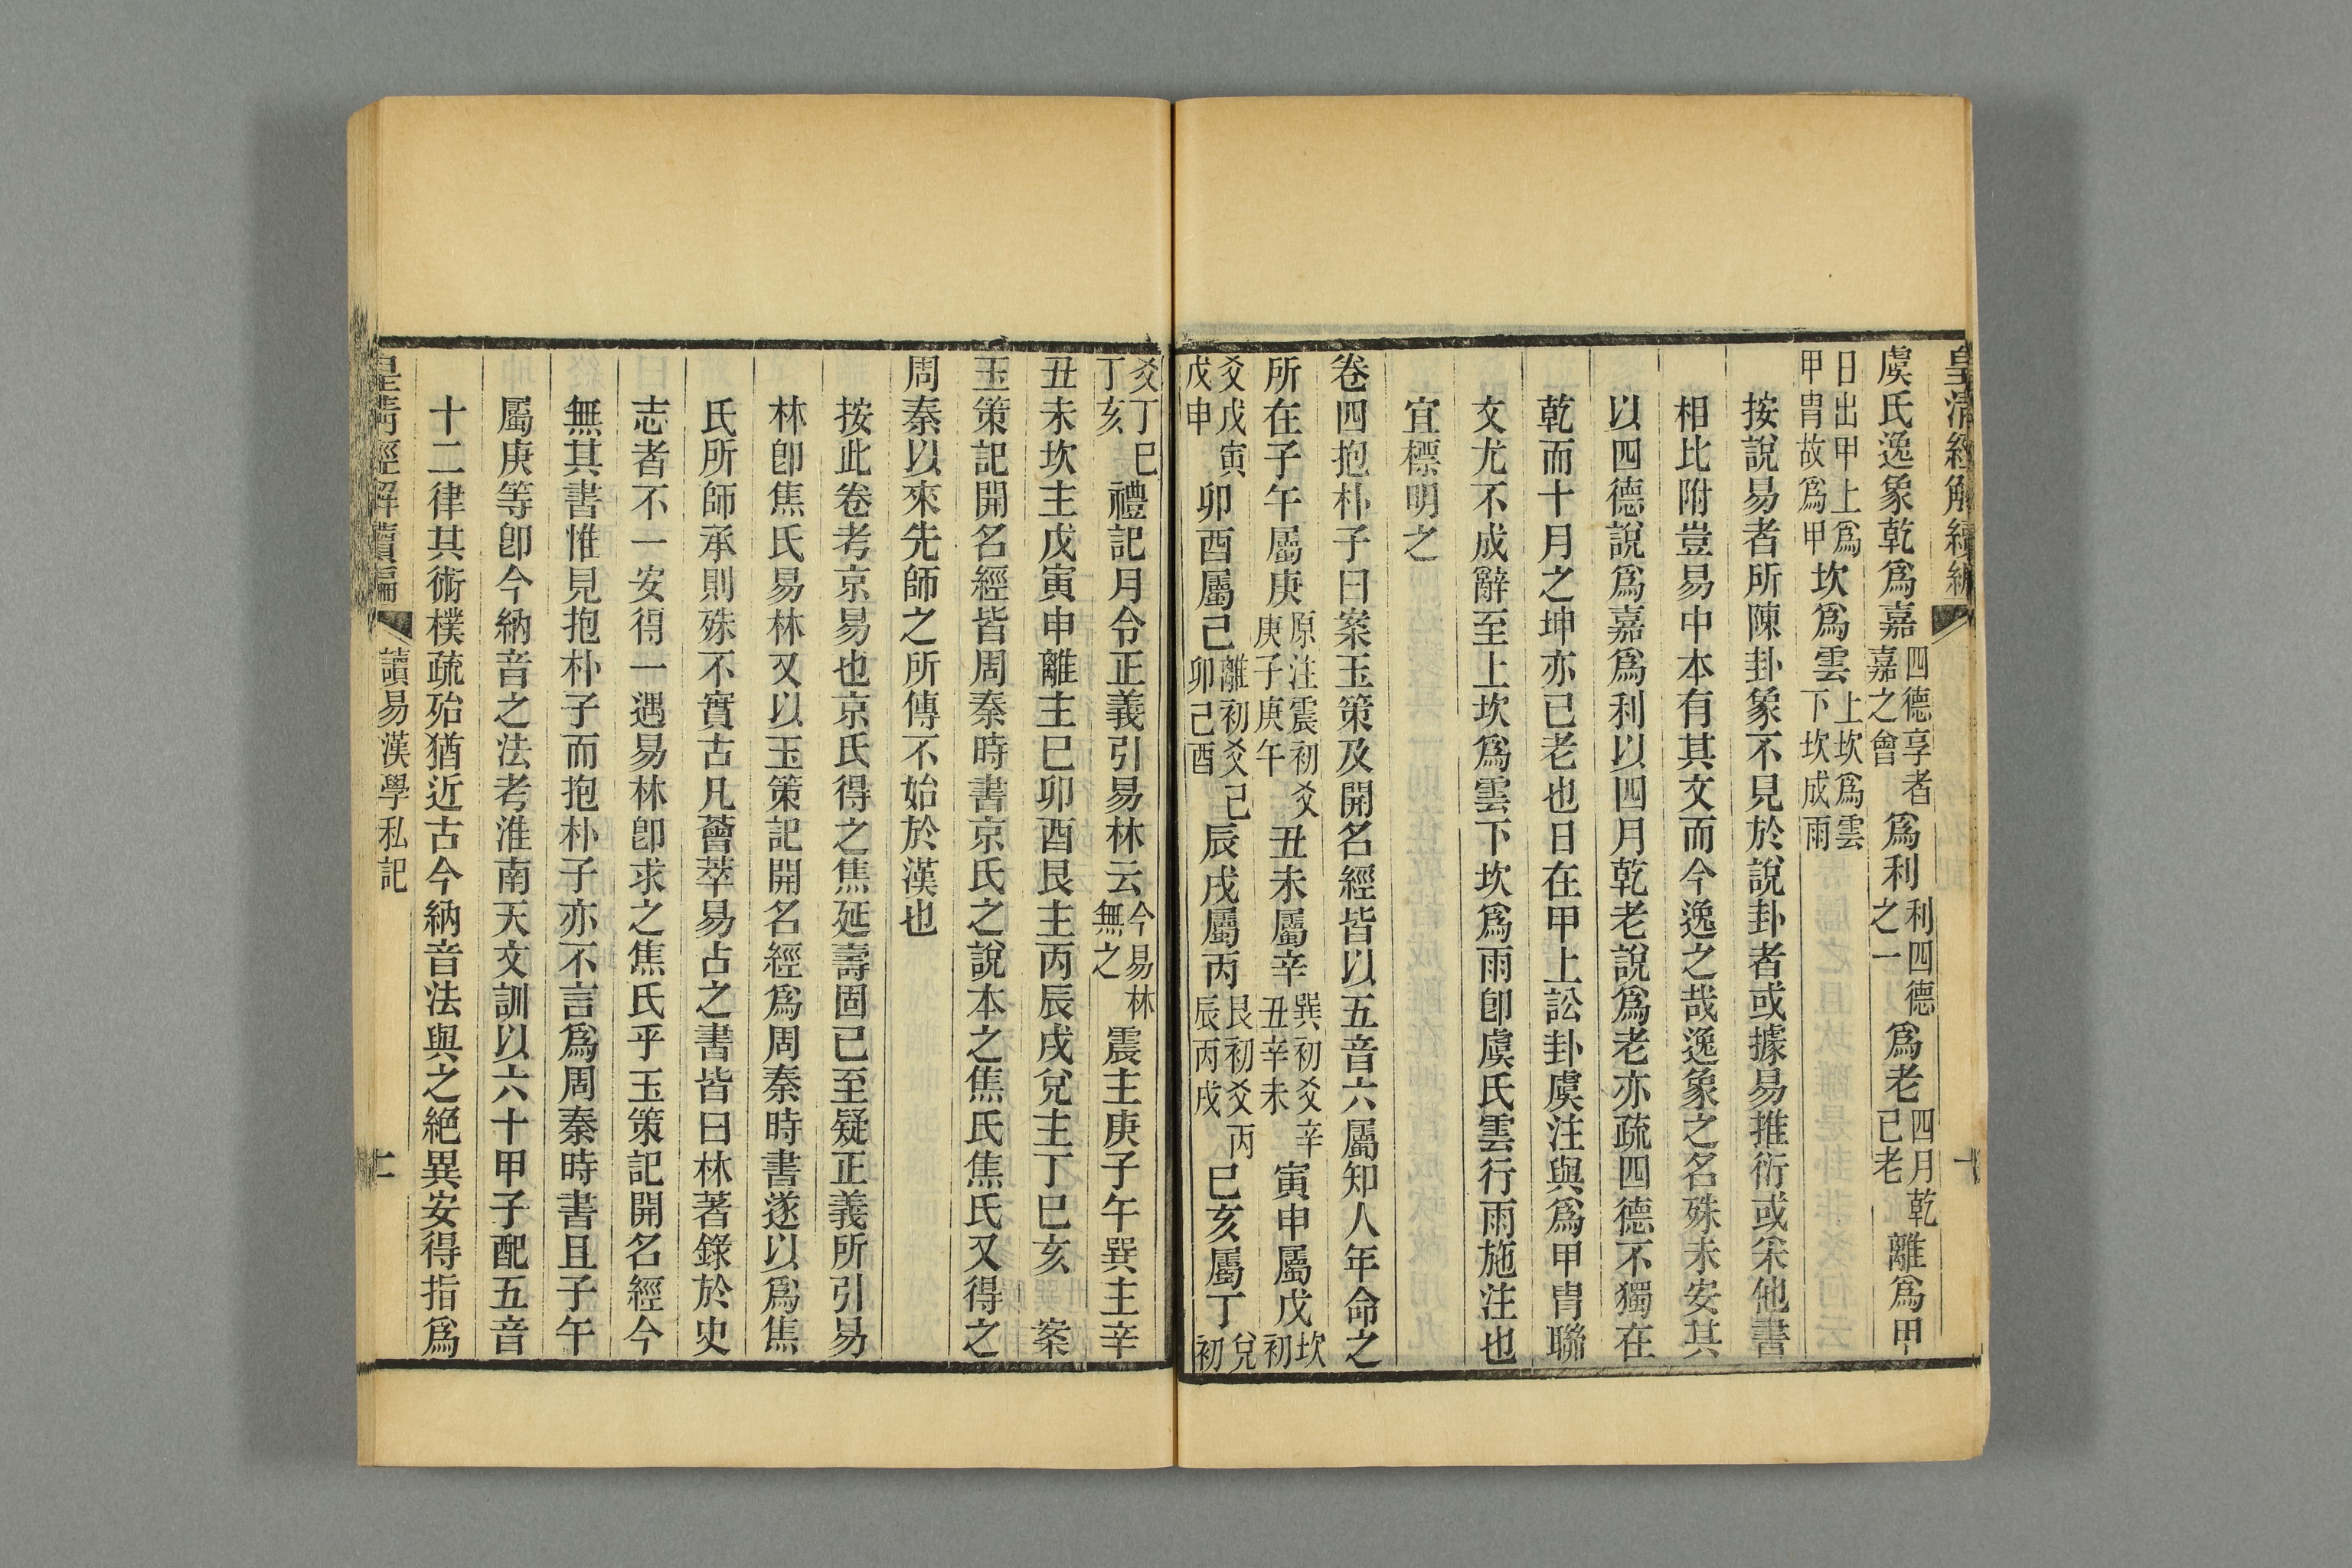 皇清經解續編
虞氏逸象乾爲嘉四德享者嘉之會爲利利四德之一爲老四月乾已老離爲甲
日出甲上爲甲胄故爲甲坎爲雲上坎爲雲下坎成雨
按說易者所陳卦象不見於說卦者或據易推衍或采他書
相比附豈易中本有其文而今逸之哉逸象之名殊未安其
以四德說爲嘉爲利以四月乾老說爲老亦疏四德不獨在
乾而十月之坤亦已老也日在甲上訟卦虞注與爲甲胄聯
文尤不成辭至上坎爲雲下坎爲雨卽虞氏雲行雨施注也
宜標明之
卷四抱朴子曰案玉策及開名經皆以五音六屬知人年命之
所在子午屬庚原注震初爻庚子庚午丑未屬辛巽初爻辛丑辛未寅申屬戊坎初
爻戊寅戊申卯酉屬己離初爻己卯己酉辰戌屬丙艮初爻丙辰丙戌巳亥屬丁兌初
爻丁巳丁亥禮記月令正義引易林云今易林無之震主庚子午巽主辛
丑未坎主戊寅申離主巳卯酉艮主丙辰戌兌主丁巳亥 案
玉策記開名經皆周秦時書京氏之說本之焦氏焦氏又得之
周秦以來先師之所傳不始於漢也
按此卷考京易也京氏得之焦延壽固已至疑正義所引易
林卽焦氏易林又以玉策記開名經爲周秦時書遂以爲焦
氏所師承則殊不實古凡薈萃易占之書皆曰林著錄於史
志者不一安得一遇易林卽求之焦氏乎玉策記開名經今
無其書惟見抱朴子而抱朴子亦不言爲周秦時書且子午
屬庚等卽今納音之法考淮南天文訓以六十甲子配五音
十二律其術樸疏殆猶近古今納音法與之絕異安得指爲
皇清經解續編 讀易漢學私記